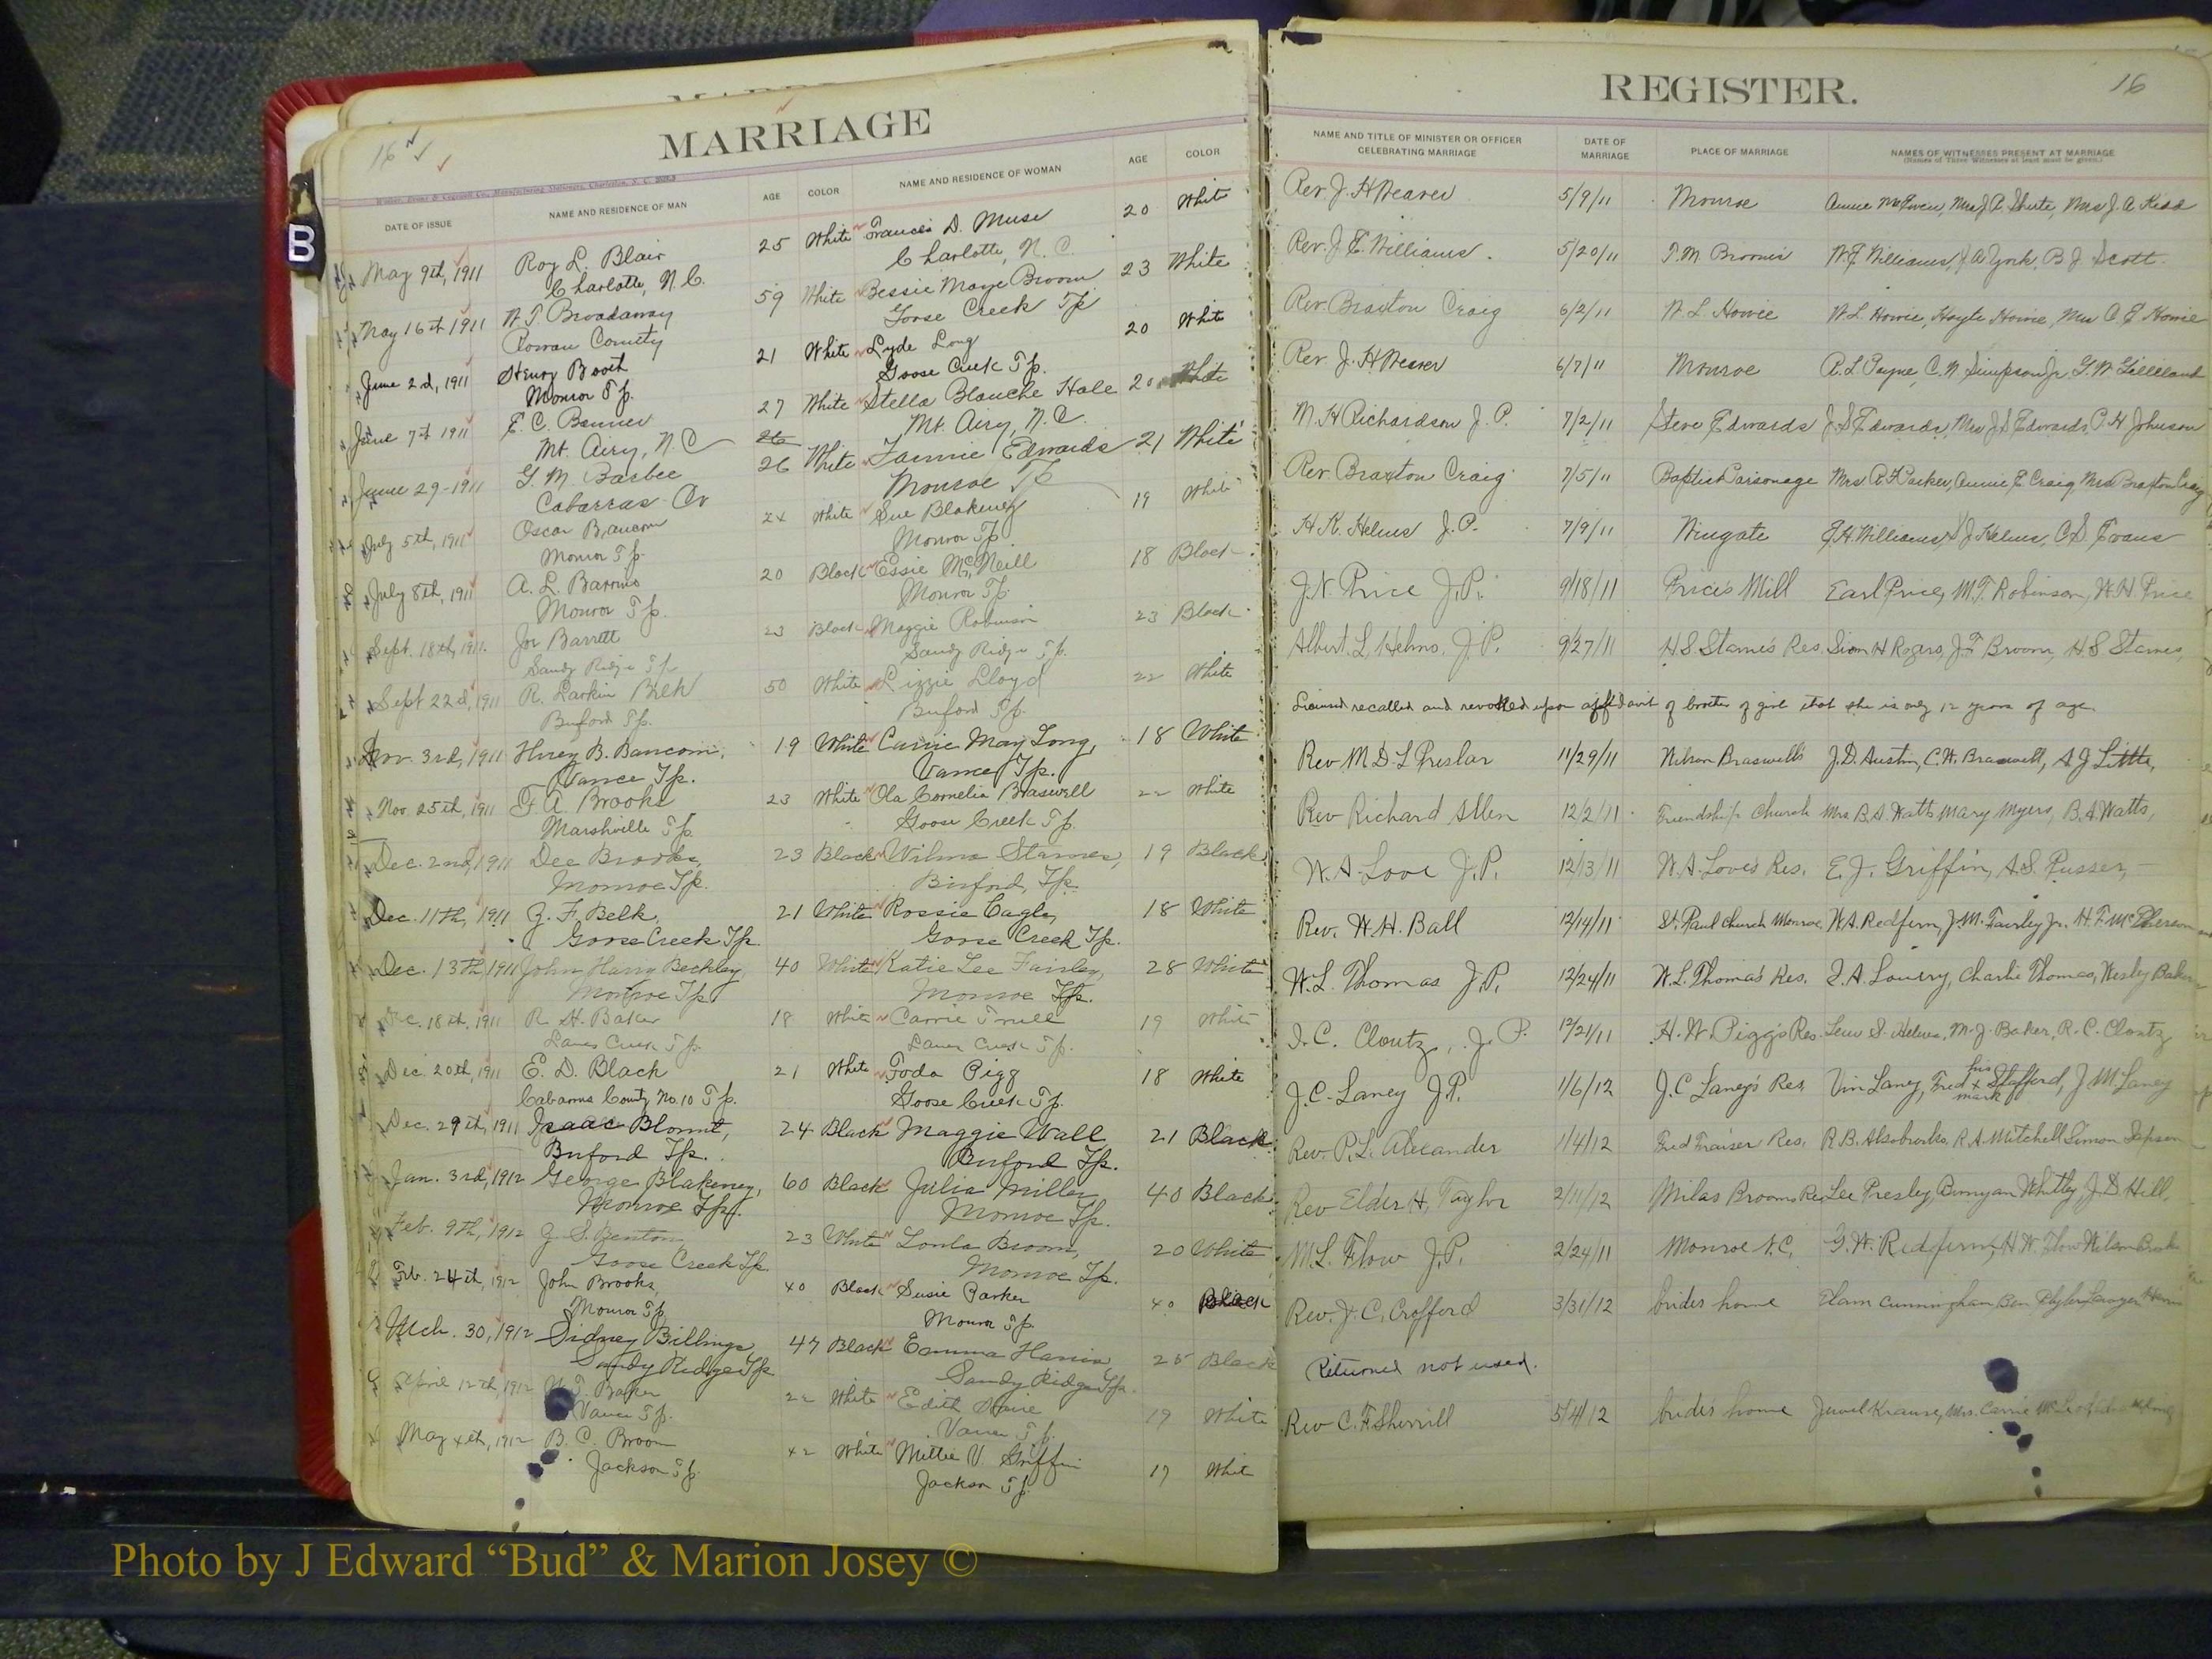 MARRIAGE
16
DATE OF ISSUE NAME AND RESIDENCE OF MAN AGE COLOR NAME AND RESIDENCE OF WOMAN AGE COLOR
May 9th, 1911 Roy L. Blair 25 White Frances D. Muse 20 White
Charlotte, N.C. Charlotte, N.C.
May 16th 1911 W.T. Broadaway 59 White Bessie Maye Broom 23 White
Rowan County Goose Creek Tp
June 2d, 1911 Henry Booth 21 White Lyde Long 20 White
Monroe Tp. Goose Creek Tp.
June 7th 1911 E.C. Banner 27 White Stella Blanche Hale 20 White
Mt. Airy, N.C Mt. Airy, N.C.
June 29-1911 G.M. Barbee 26 White Fannie Edwards 21 White
Cabarras Co Monroe Tp
July 5th, 1911 Oscar Baucom 24 White Sue Blakeney 19 White
Monroe Tp. Monroe Tp
July 8th, 1911 A.L. Barrino 20 Black Essie McNeill 18 Black
Monroe Tp. Monroe Tp.
Sept. 18th, 1911. Joe Barrett 23 Black Maggie Robinson 23 Black
Sandy Ridge Tp Sandy Ridge Tp.
Sept 22d, 1911 R. Larkin Belk 50 White Lizzie Lloyd 22 White
Buford Tp. Buford Tp.
Nov. 3rd, 1911 B. Baucom, 19 White Carrie May Long, 18 White
Vance Tp. Vance Tp.
Nov. 25th, 1911 A. Brooks 23 White Ola Cornelia Braswell 22 White
Marshville Tp. Goose Creek Tp.
Dec. 2nd, 1911 Dee Brooks, 23 Black Wilma Starnes, 19 Black
Monroe Tp. Buford, Tp.
Dec. 11th, 1911 G.F. Belk, 21 White Rossie Cagle, 18 White
Goose Creek Tp. Goose Creek Tp.
Dec. 13th 1911 John Harry Beckley, 40 White Katie Lee Fairley, 28 White
Monroe Tp Monroe Tp.
Dec. 18th, 1911 R.H. Baker 18 White Carrie Trull 19 White
Lanes Creek Tp. Lanes Creek Tp.
Dec. 20th, 1911 E.D. Black 21 White Foda Pigg 18 White
Cabarrus County No. 10 Tp. Goose Creek Tp.
Dec. 29th, 1911 Isaac Blount, 24 Black Maggie Wall 21 Black
Buford Tp. Buford Tp.
Jan. 3rd, 1912 George Blakeney, 60 Black Julia Miller 40 Black
Monroe Tp. Monroe Tp.
Feb. 9th, 1912 J.S. Benton, 23 White Broom, 20 White
Goose Creek Tp. Monroe Tp.
Feb. 24th, 1912 John Brooks, 40 Black Susie Parker 40 Black
Monroe Tp. Monroe Tp.
Mch. 30, 1912 Sidney Billings 47 Black Emma Harris, 25 Black
Sandy Ridge Tp Sandy Ridge Tp.
April 12th, 1912 Baker 22 White Edith 19 White
Vance Tp. Vance Tp.
May 4th, 1912 B.C. Broom 42 White Mittie V. Griffin 19 White
Jackson Tp. Jackson Tp.
REGISTER.
16
NAME AND TITLE OF MINISTER OR OFFICER CELEBRATING MARRIAGE DATE OF MARRIAGE PLACE OF MARRIAGE NAMES OF WITNESSES PRESENT AT MARRIAGE
(Names of Three Witnesses at least must be given.)
Rev. J.H Weaver 5/9/11 Monroe Annie McEwen, Mrs J.R. Shute, Mrs J.A. Kidd
Rev. J.E. Williams. 5/20/11 T.M. Broom's W.J. Williams, J.A. York, B.J. Scott.
Rev. Braxton Craig 6/2/11 W.L. Howie W.L. Howie, Hoyle Howie, Mrs Howie
Rev. J.H Weaver 6/7/11 Monroe R.L Payne, C.N. Simpson Jr, G.W. Gilleland
M.H Richardson J.P. 7/2/11 Steve Edwards J.S Edwards, Mrs J.S Edwards, P.H Johnson
Rev. Braxton Craig 7/5/11 Baptist Parsonage Mrs R.F. Parker, Annie E. Craig, Mrs Braxton Craig
H.K. Helms J.P. 7/9/11 Wingate E.H. Williams, J Helms, C.S. Evans
J.N. Price J.P. 9/18/11 Price's Mill Earl Price, M.F. Robinson, W.H. Price
Albert. L. Helms, J.P. 9/27/11 H.S Starnes Res. Sion H Rogers, J.F Broom, H.S. Starnes,
License recalled and revoked upon affidavit of brother of girl that she is only 12 years of age.
Rev M.D.L Preslar 11/29/11 Nelson Braswell's J.D. Austin, C.W. Braswell, A.J Little,
Rev Richard Allen 12/2/11 Friendship Church Mrs B.A. Watts Mary Myers, B.A. Watts,
W.A. Love J.P. 12/13/11 W.A. Love's Res. E.J. Griffin, A.S. Pusser,
Rev. W.H. Ball 12/14/11 St. Paul Church Monroe W.A. Redfern, J.M. Fairley Jr. H.F. McPherson
W.L. Thomas J.P. 12/24/11 W.L. Thomas's Res. J.A. Lowery, Charlie Thomas, Wesley Baker
I.C. Clontz, J.P. 12/21/11 H.W. Pigg's Res. S. Helms, M.J. Baker, R.C. Clontz
J.C. Laney J.P. 1/6/12 J.C Laney's Res. Vin Laney, Fred his x mark Stafford, J.M. Laney
Rev. P.L. Alexander 1/4/12 Fred Fraiser Res. R.B. Alsobrooks, R.A. Mitchell
Rev Elder H. Taylor 2/11/12 Milas Brooms Res Lee Presley, Bunyan Whitley, J.D. Hill,
M.L. Flow J.P. 2/24/11 Monroe N.C. G.W. Redfern, H.W. Flow
Rev. J.C. Crofford 3/31/12 brides home Elam Cunningham Ben
Returned not used.
Rev C.F. Sherrill 5/4/12 brides home Jewel Krause, Mrs. Carrie
B
Photo by J Edward “Bud” & Marion Josey ©